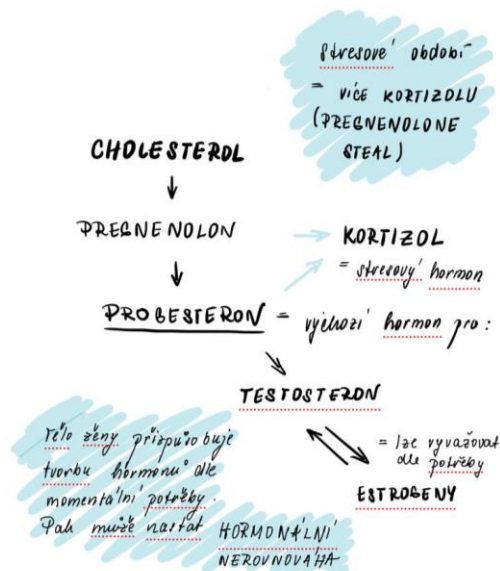 stresové období
= více KORTIZOLU
(PREGNENOLONE
STEAL)
CHOLESTEROL
PREGNENOLON
KORTIZOL
= stresový hormon
PROGESTERON = výchozí hormon pro:
TESTOSTERON
= lze vyvažovat
dle potřeby
ESTROGENY
Tělo ženy přizpůsobuje
tvorbu hormonů dle
momentální potřeby.
Pak může nastat HORMONÁLNÍ
NEROVNOVÁHA